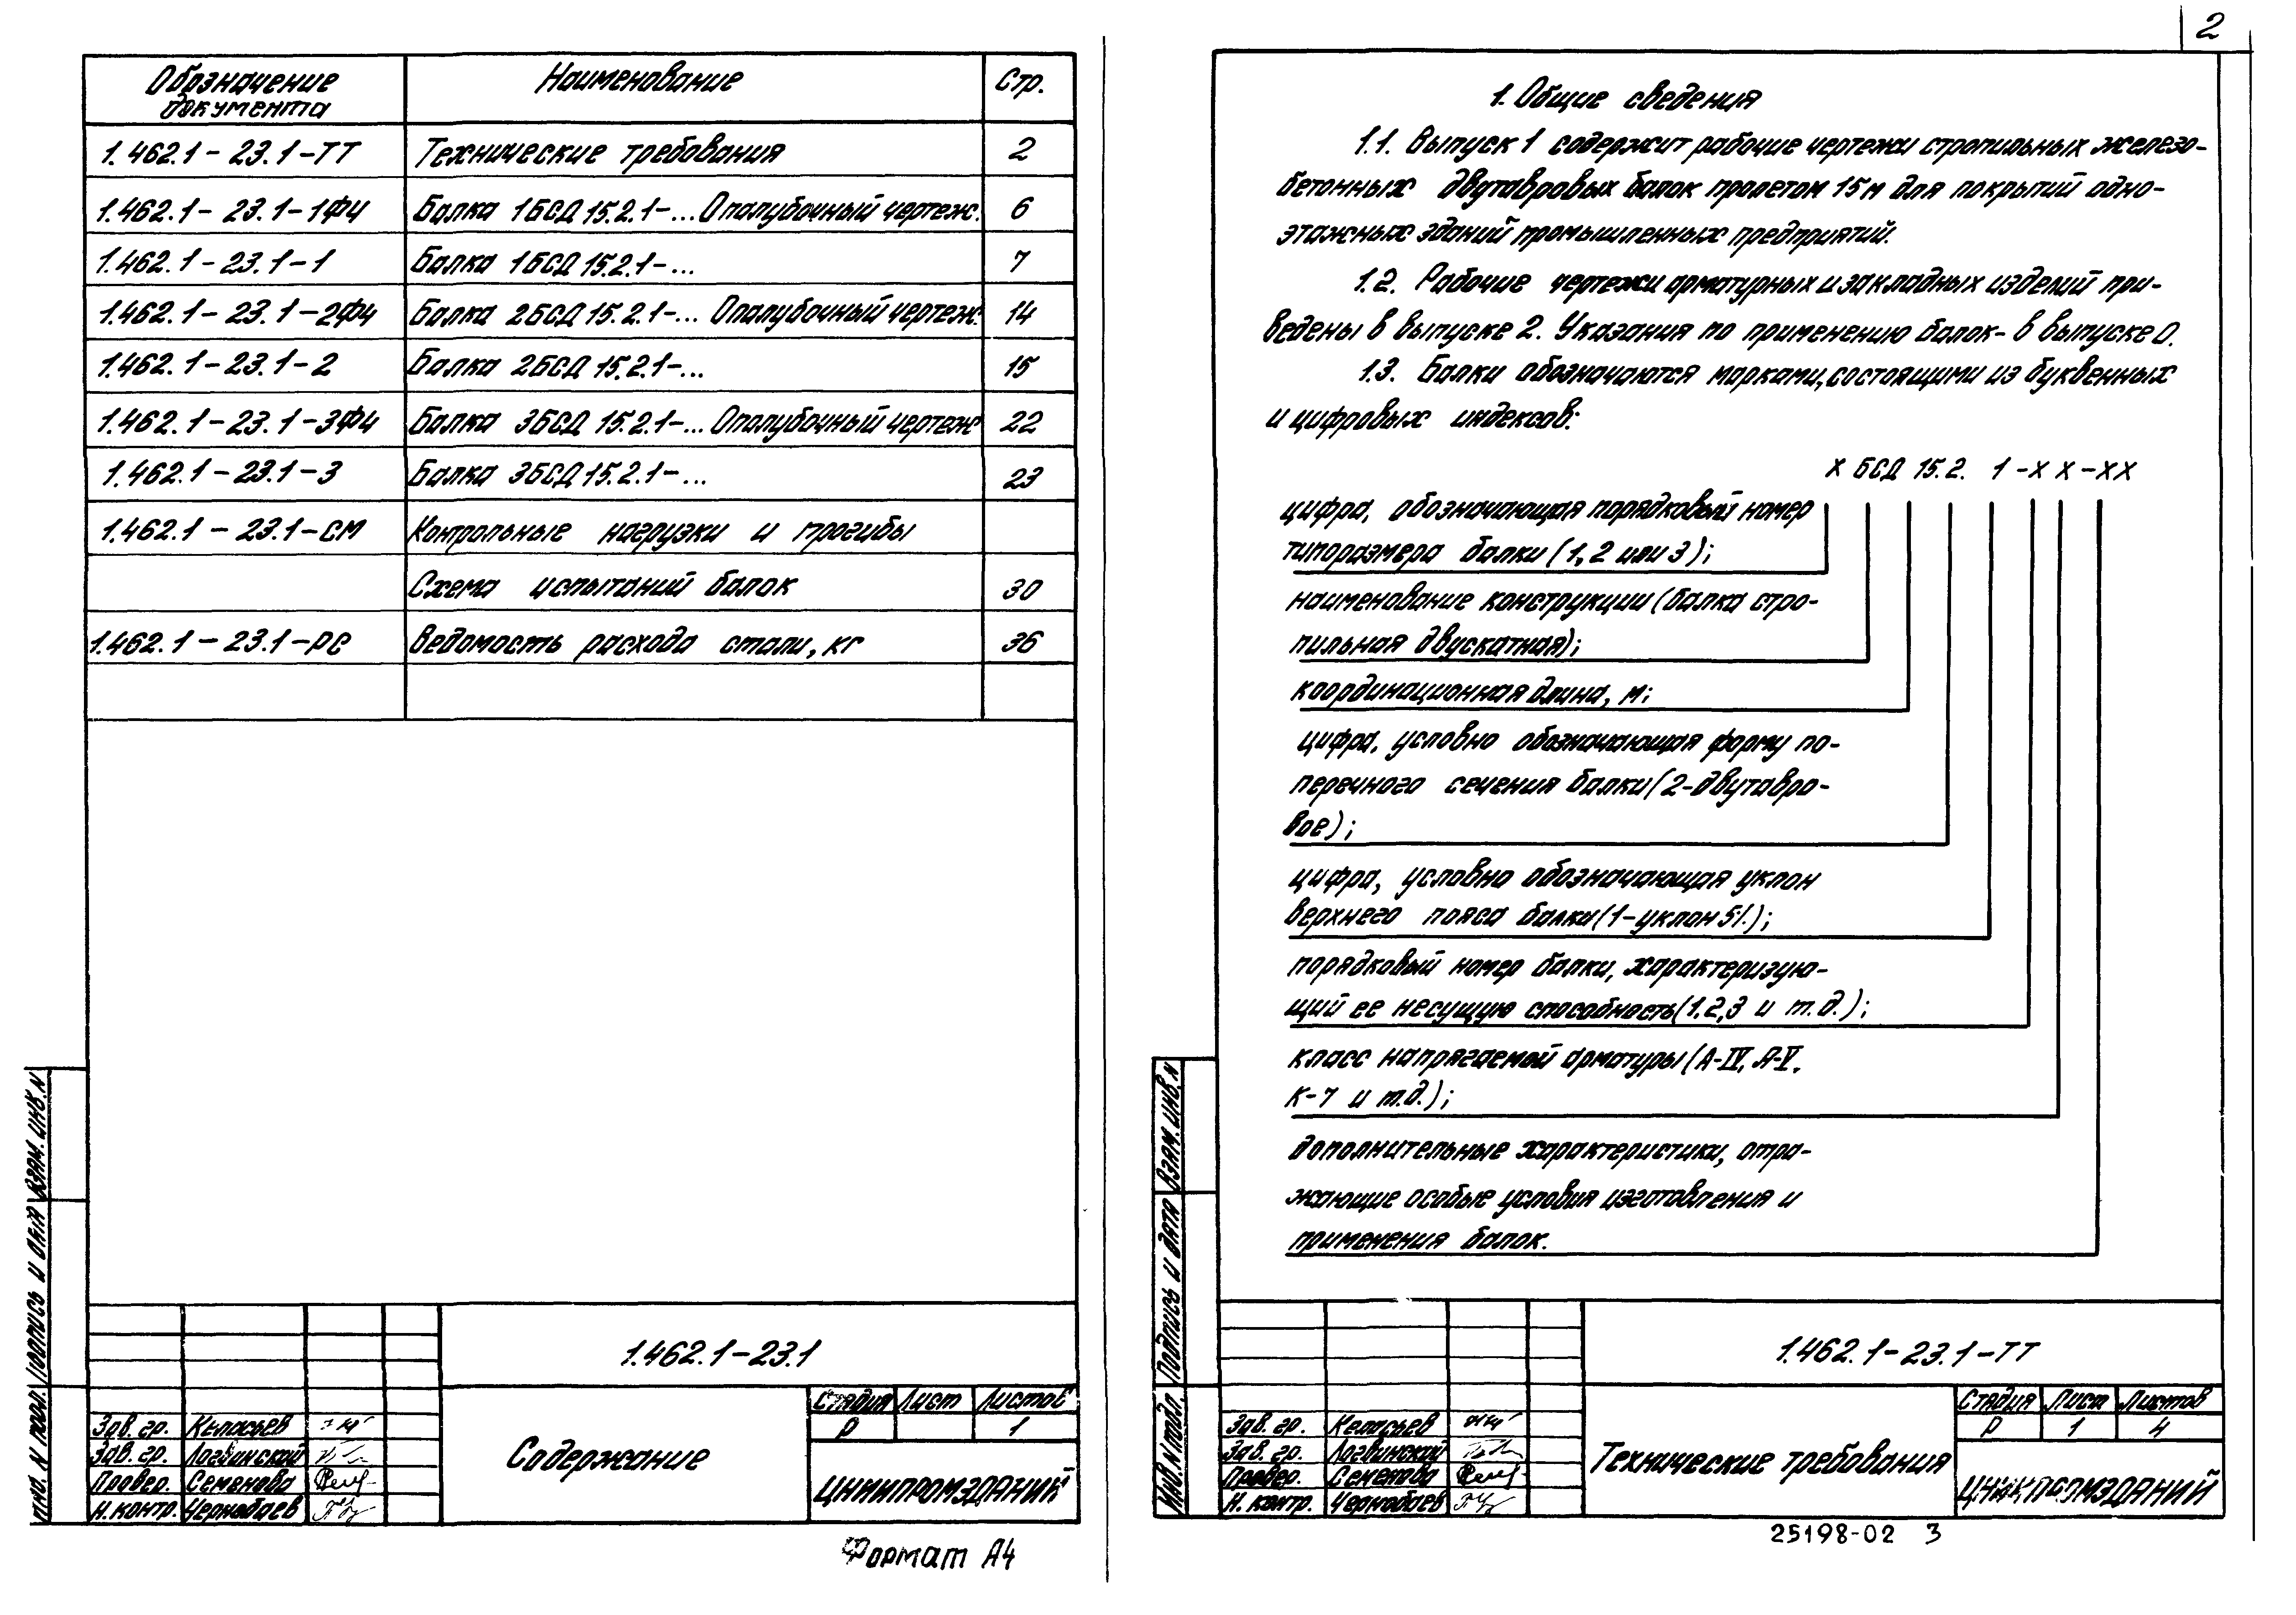 Обозначение документа Наименование Стр.
1.462.1-23.1-ТТ Технические требования 2
1.462.1-23.1-1ФЧ Балка 1БСД 15.2.1-... Опалубочный чертеж. 6
1.462.1-23.1-1 Балка 1БСД 15.2.1-... 7
1.462.1-23.1-2ФЧ Балка 2БСД 15.2.1-... Опалубочный чертеж. 14
1.462.1-23.1-2 Балка 2БСД 15.2.1-... 15
1.462.1-23.1-3ФЧ Балка 3БСД 15.2.1-... Опалубочный чертеж 22
1.462.1-23.1-3 Балка 3БСД 15.2.1-... 23
1.462.1-23.1-СМ Контрольные нагрузки и прогибы
Схема испытаний балок 30
1.462.1-23.1-РС Ведомость расхода стали, кг 36
ВЗАМ. ИНВ. N
Подпись и дата
Инв. N подл.
1.462.1-23.1
Стадия Лист Листов
Р 1
Зав. гр. Келасьев
Зав. гр. Логвинский
Провер. Семенова
Н. контр. Чернобаев
Содержание
ЦНИИПРОМЗДАНИЙ
Формат А4
2
1. Общие сведения
1.1. Выпуск 1 содержит рабочие чертежи стропильных железо-
бетонных двутавровых балок пролетом 15м для покрытий одно-
этажных зданий промышленных предприятий.
1.2. Рабочие чертежи арматурных и закладных изделий при-
ведены в выпуске 2. Указания по применению балок- в выпуске 0.
1.3. Балки обозначаются марками, состоящими из буквенных
и цифровых индексов:
Х БСД 15.2. 1 -Х Х -ХХ
цифра, обозначающая порядковый номер
типоразмера балки (1, 2 или 3);
наименование конструкции (балка стро-
пильная двускатная);
координационная длина, м;
цифра, условно обозначающая форму по-
перечного сечения балки (2-двутавро-
вое);
цифра, условно обозначающая уклон
верхнего пояса балки (1-уклон 5%);
порядковый номер балки, характеризую-
щий ее несущую способность (1,2,3 и т.д.);
класс напрягаемой арматуры (А-IV, А-V,
К-7 и т.д.);
дополнительные характеристики, отра-
жающие особые условия изготовления и
применения балок.
ВЗАМ. ИНВ. N
Подпись и дата
Инв. N подл.
1.462.1-23.1-ТТ
Стадия Лист Листов
Р 1 4
Зав. гр. Келасьев
Зав. гр. Логвинский
Провер. Семенова
Н. контр. Чернобаев
Технические требования
ЦНИИПРОМЗДАНИЙ
25198-02 3